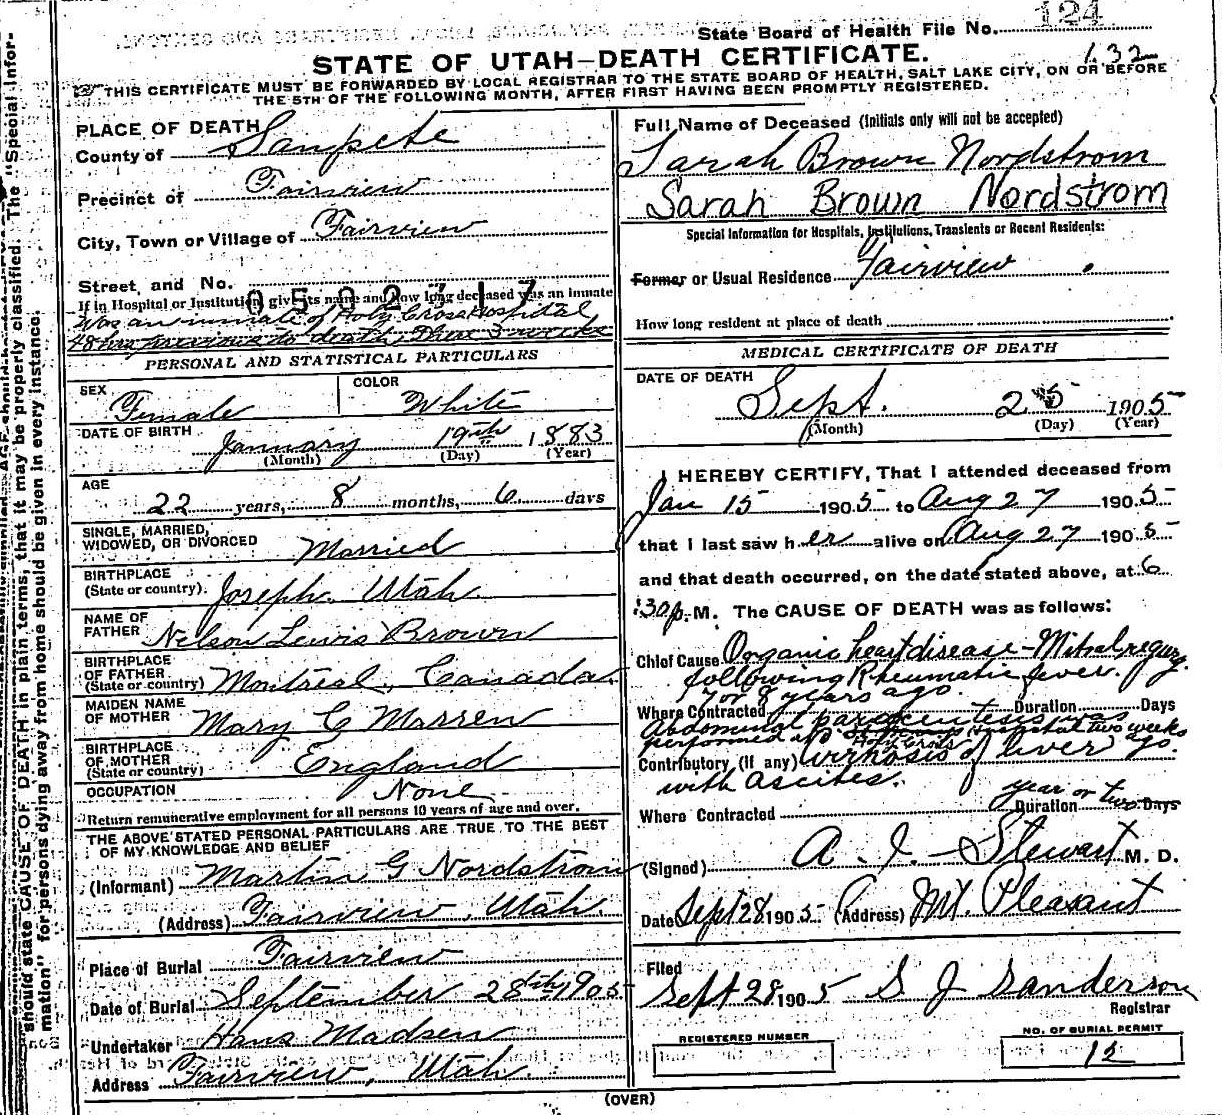 124
State Board of Health File No.
STATE OF UTAH—DEATH CERTIFICATE.
132
THIS CERTIFICATE MUST BE FORWARDED BY LOCAL REGISTRAR TO THE STATE BOARD OF HEALTH, SALT LAKE CITY, ON OR BEFORE
THE 5TH OF THE FOLLOWING MONTH, AFTER FIRST HAVING BEEN PROMPTLY REGISTERED.
PLACE OF DEATH
County of Sanpete
Precinct of Fairview
City, Town or Village of Fairview
Street, and No.
0502717
If in Hospital or Institution, give its name and how long deceased was an inmate
Was an inmate of Holy Cross Hospital
48 hrs previous to death, There 3 weeks
PERSONAL AND STATISTICAL PARTICULARS
SEX Female
COLOR White
DATE OF BIRTH January 19th 1883
(Month) (Day) (Year)
AGE 22 years, 8 months, 6 days
SINGLE, MARRIED,
WIDOWED, OR DIVORCED Married
BIRTHPLACE
(State or country). Joseph. Utah.
NAME OF
FATHER Nelson Lewis Brown
BIRTHPLACE
OF FATHER
(State or country) Montreal, Canada.
MAIDEN NAME
OF MOTHER Mary C Marren
BIRTHPLACE
OF MOTHER
(State or country) England
OCCUPATION None
Return remunerative employment for all persons 10 years of age and over.
THE ABOVE STATED PERSONAL PARTICULARS ARE TRUE TO THE BEST
OF MY KNOWLEDGE AND BELIEF
(Informant) Martin G Nordstrom
(Address) Fairview, Utah.
Place of Burial Fairview
Date of Burial September 28th 1905
Undertaker Hans Madsen
Address Fairview, Utah.
Full Name of Deceased (Initials only will not be accepted)
Sarah Brown Nordstrom
Sarah Brown Nordstrom
Special Information for Hospitals, Institutions, Transients or Recent Residents:
Former or Usual Residence Fairview
How long resident at place of death
MEDICAL CERTIFICATE OF DEATH
DATE OF DEATH
Sept. 25 1905
(Month) (Day) (Year)
I HEREBY CERTIFY, That I attended deceased from
Jan 15 1905 to Aug 27 1905
that I last saw her alive on Aug 27 1905
and that death occurred, on the date stated above, at 6
:30 p. M. The CAUSE OF DEATH was as follows:
Chief Cause Organic heart disease - Mitral regurg.
following Rheumatic fever.
7 or 8 years ago.
Where Contracted Duration Days
Abdominal paracentesis was
performed at Holy Cross Hospital two weeks ago.
Contributory (if any) Cirrhosis of liver
with Ascites.
year or two
Where Contracted Duration Days
(Signed) A. J. Stewart M. D.
Date Sept 28 1905 (Address) Mt. Pleasant
Filed
Sept 28 1905 S J Sanderson
Registrar
REGISTERED NUMBER
NO. OF BURIAL PERMIT
12
(OVER)
should state CAUSE OF DEATH in plain terms, that it may be properly classified. The "Special Infor-
mation" for persons dying away from home should be given in every instance.